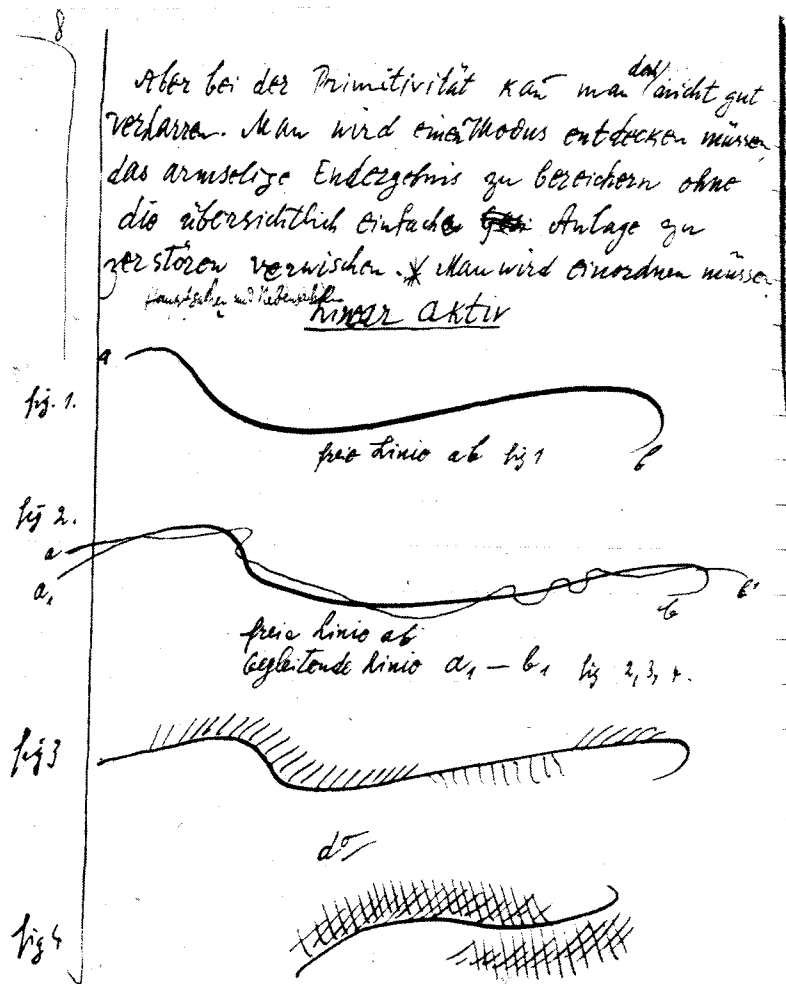 8
Aber bei der Primitivität kañ man doch nicht gut
verharren. Man wird einen Modus entdecken müssen
das armselige Endergebnis zu bereichern ohne
die übersichtlich einfache Anlage zu
zerstören verwischen. Man wird einordnen müssen
Hauptsachen und Nebensachen
Linear aktiv
a
fig. 1.
freie Linie ab fig 1
b
fig 2.
a
a₁
b
b¹
freie Linie ab
begleitende Linie a₁ — b₁ fig 2, 3, 4.
fig 3
dº
fig 4